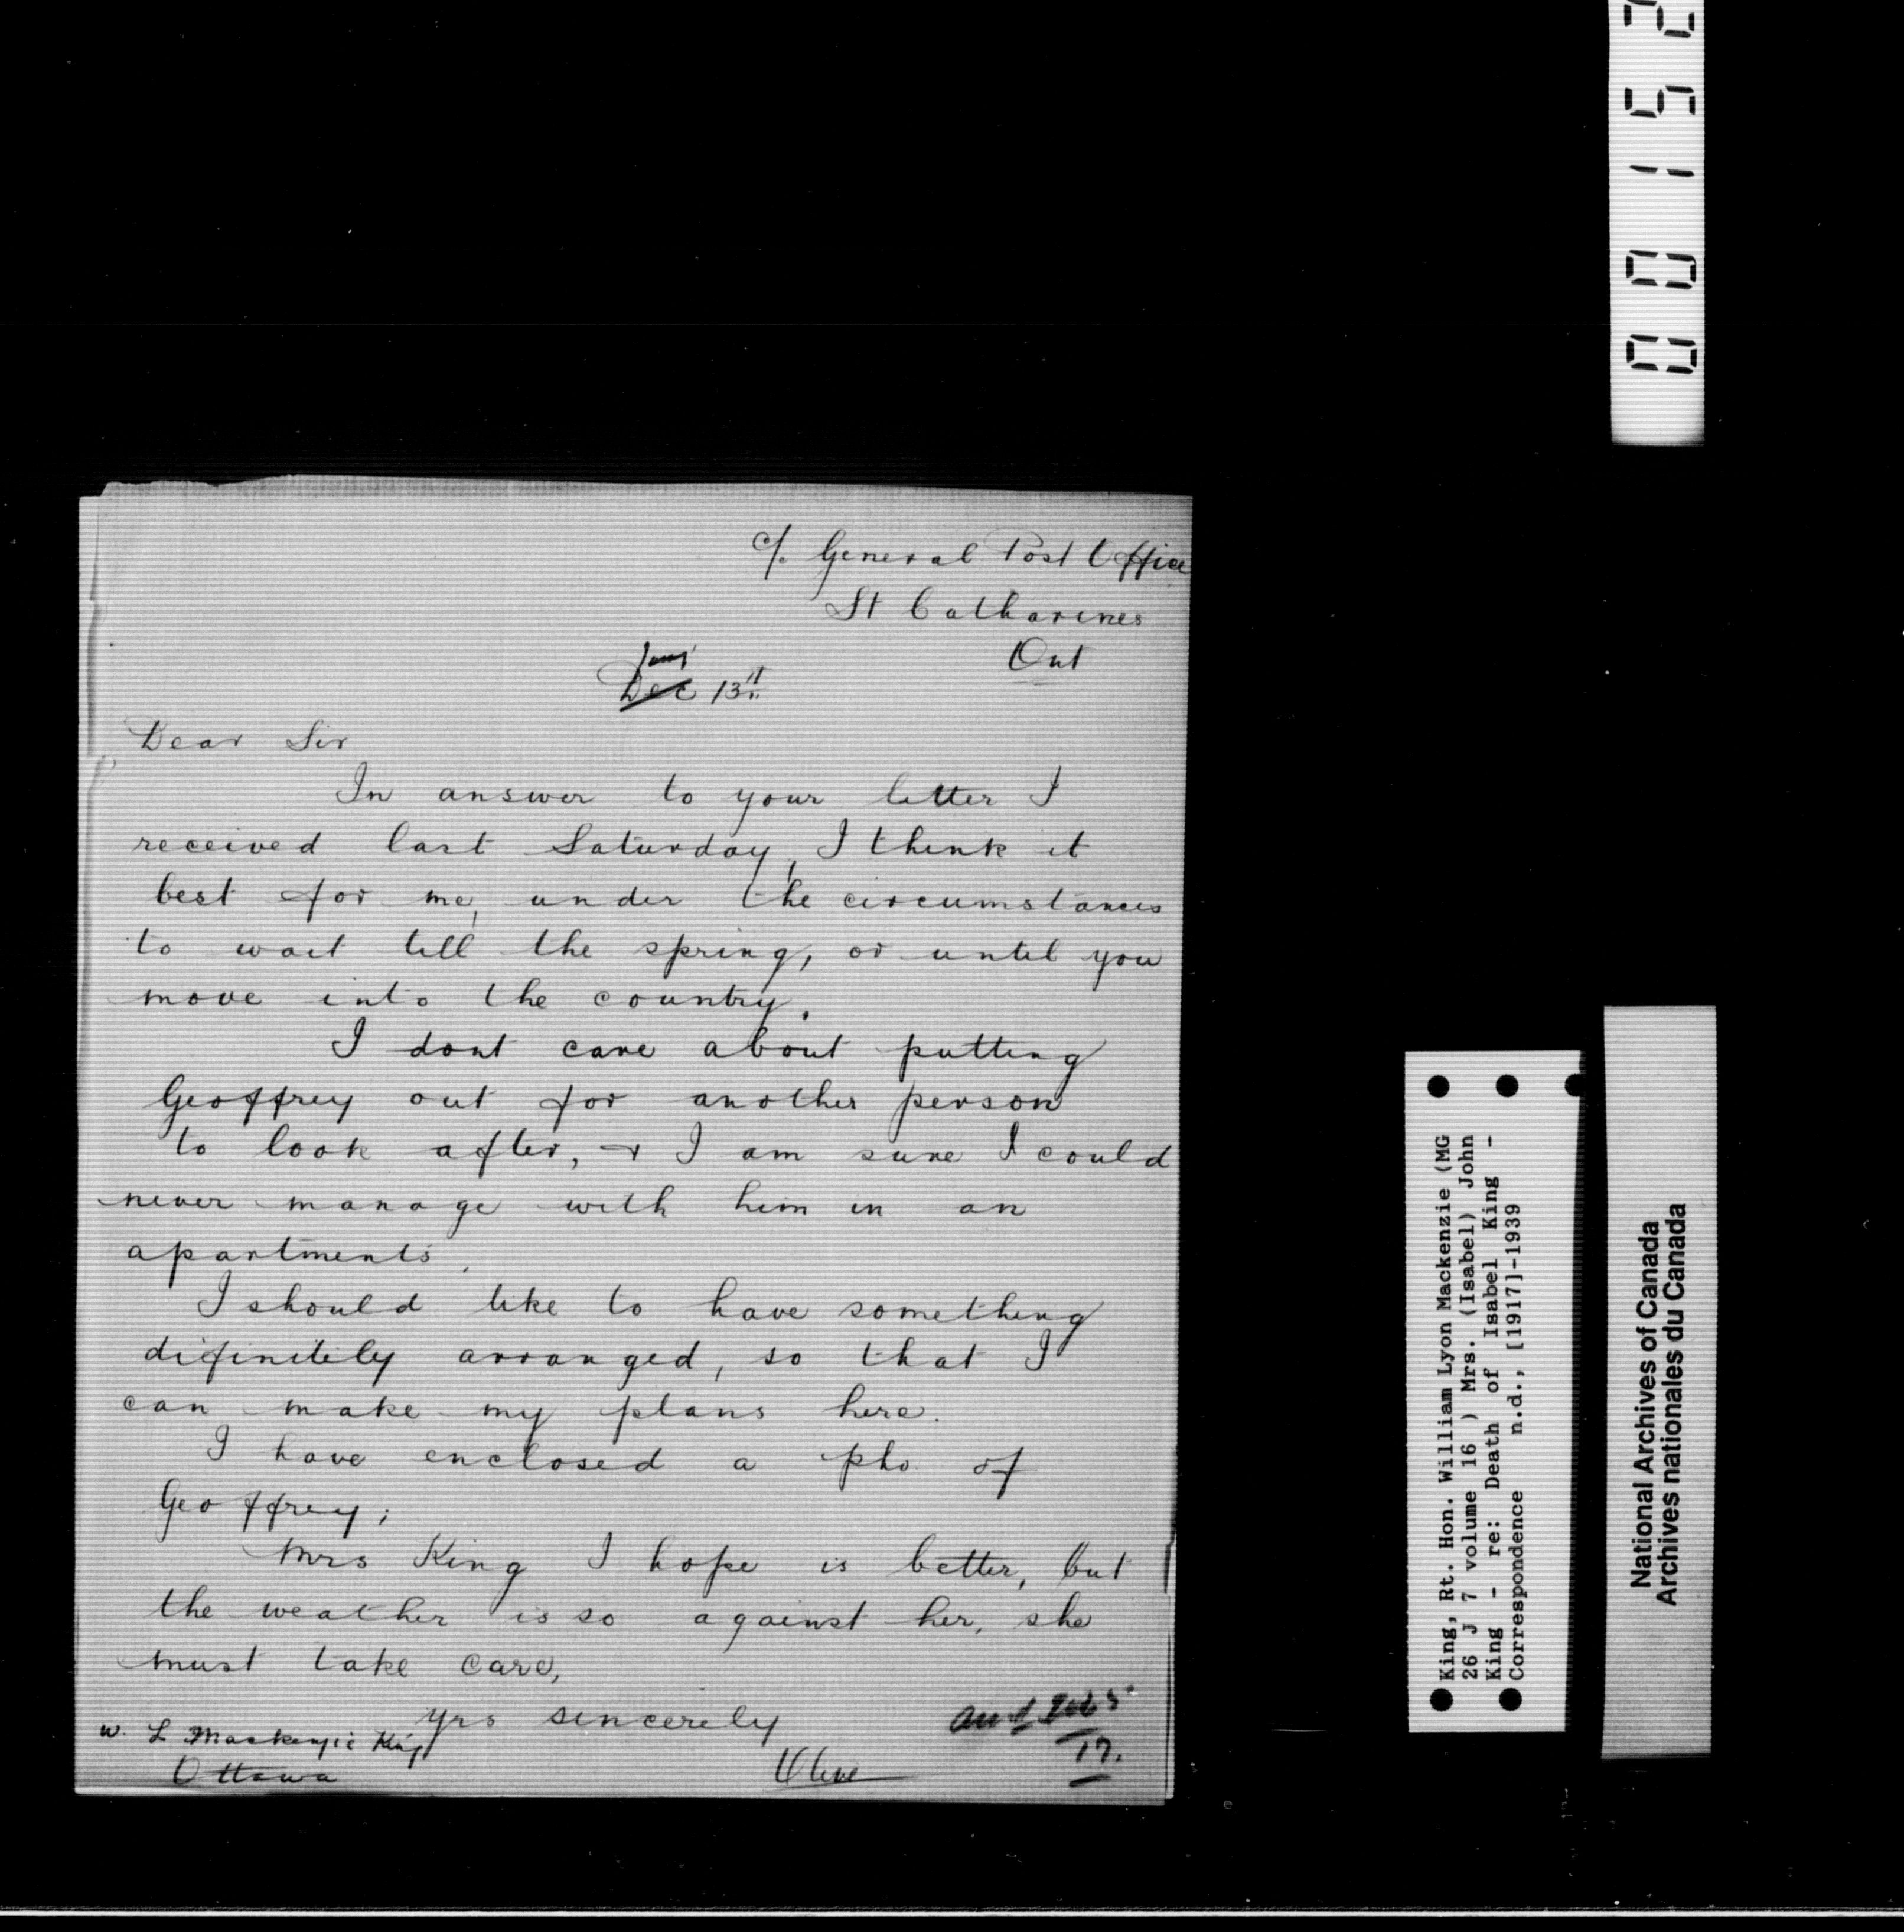 c/o General Post Office
St Catharines
Ont
Jany
Dec 13th
Dear Sir
In answer to your letter I
received last Saturday, I think it
best for me, under the circumstances
to wait till the spring, or until you
move into the country.
I dont care about putting
Geoffrey out for another person
to look after, & I am sure I could
never manage with him in an
apartments.
I should like to have something
difinitely arranged, so that I
can make my plans here.
I have enclosed a pho. of
Geoffrey;
Mrs King I hope is better, but
the weather is so against her, she
must take care,
yrs sincerely
W. L Mackenzie King
Ottawa
Olive
17.
00152
King, Rt. Hon. William Lyon Mackenzie (MG
26 J 7 volume 16 ) Mrs. (Isabel) John
King - re: Death of Isabel King -
Correspondence n.d., [1917]-1939
National Archives of Canada
Archives nationales du Canada